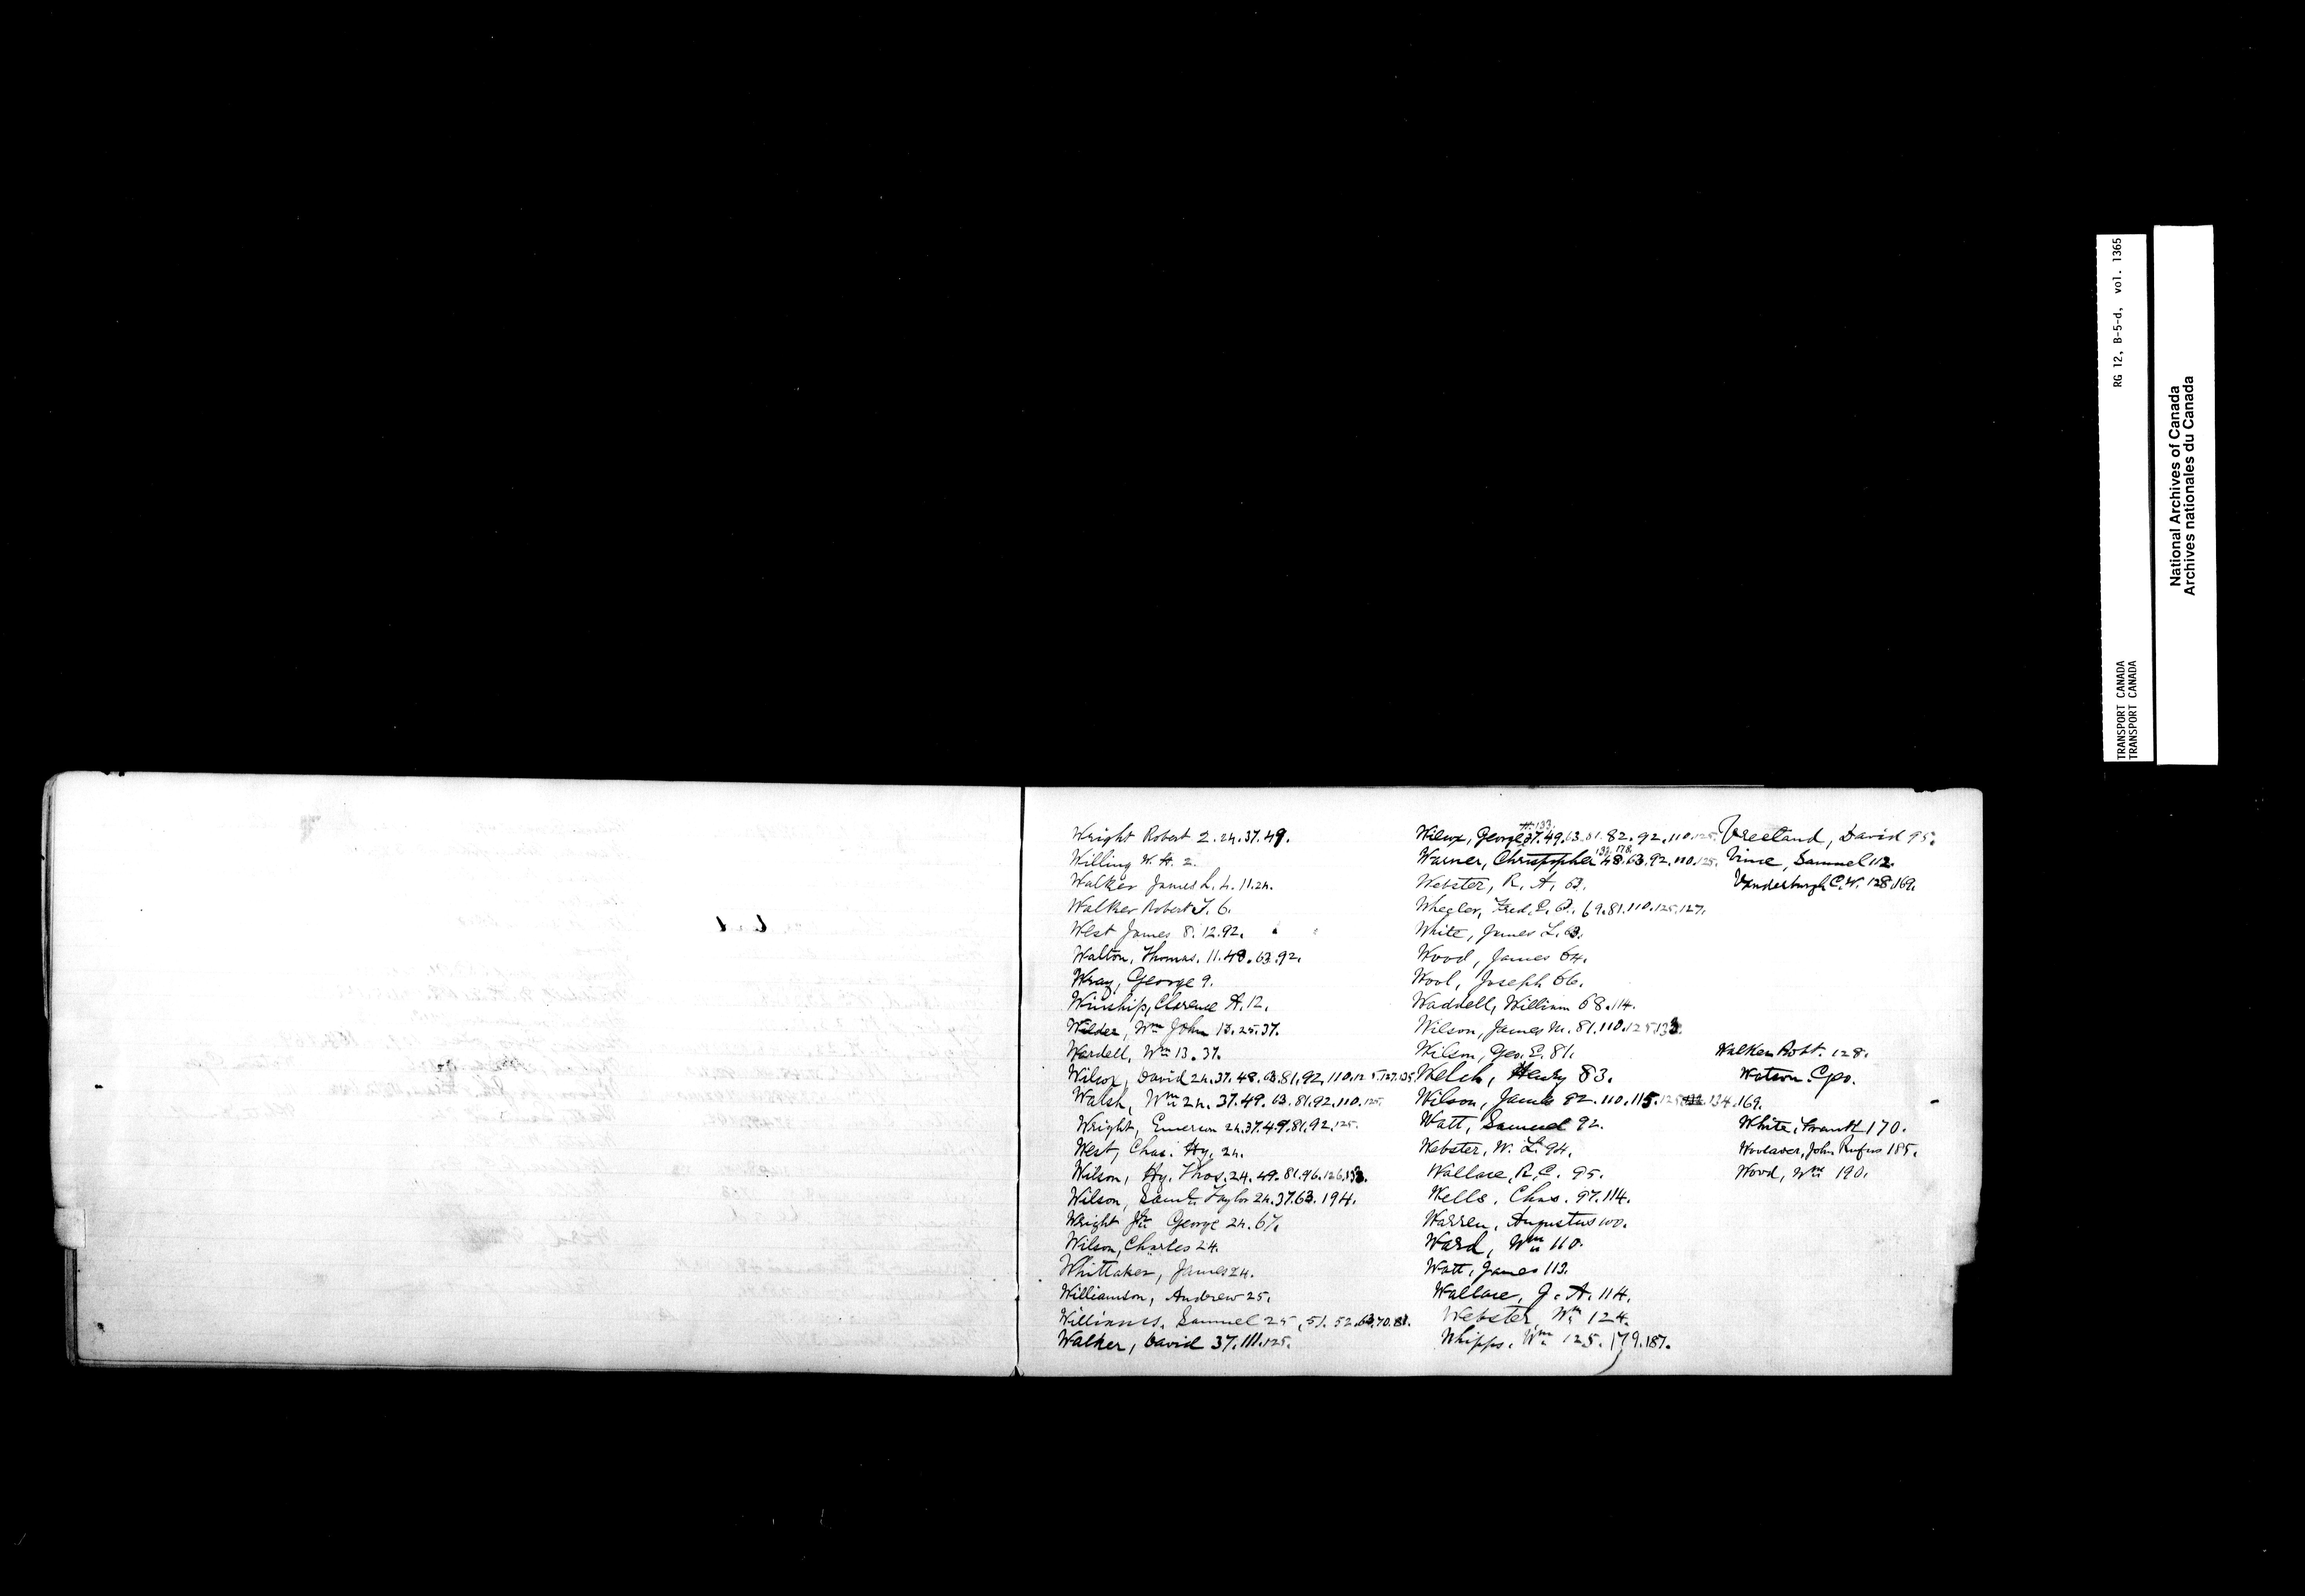 Wright Robert 2.24.37.49.
Willing W. H. 2.
Walker James L. 4.11.24.
Walker Robert J. 6.
West James 8.12.92.
Walton, Thomas. 11.48.63.92.
Wray, George 9.
Winship, Clarence A. 12.
Wilder, Wm John 13.25.37.
Wardell, Wm 13.37.
Wilcox, David 24.37.48.63.81.92.110.125.127.135
Walsh, Wm 24.37.49.63.81.92.110.125.
Wright, Emerson 24.37.49.81.92.125.
West, Chas. Hy. 24.
Wilson, Hy. Thos. 24.49.81.96.126.
Wilson, Saml. Taylor 24.37.63.194.
Wright Jr. George 24.67.
Wilson, Charles 24.
Whittaker, James 24.
Williamson, Andrew 25.
Williams, Samuel 25.51.52.63.70.81.
Walker, David 37.111.125.
133.
Wilcox, George 37.49.63.81.82.92.110.125.
133.178.
Warner, Christopher 48.63.92.110.125.
Webster, R. A. 63.
Wheeler, Fred. 69.81.110.125.127.
White, James L. 63.
Wood, James 64.
Wool, Joseph 66.
Waddell, William 68.114.
Wilson, James M. 81.110.125.
Wilson, Geo. E. 81.
Welch, Henry 83.
Wilson, James 92.110.115. 134.169.
Watt, Samuel 92.
Webster, W. L. 94.
Wallace, R. C. 95.
Wells, Chas. 97.114.
Warren, Augustus 100.
Ward, Wm 110.
Watt, James 113.
Wallace, J. A. 114.
Webster, Wm 124.
Whipps, Wm 125.179.187.
Vreeland, David 95.
Vine, Samuel 112.
Vanderburgh C. W. 128.169.
Walker Robt. 128.
Watson Geo.
White, Frank 170.
Woolaver, John Rufus 185.
Wood, Wm 190.
RG 12, B-5-d, vol. 1365
TRANSPORT CANADA
TRANSPORT CANADA
National Archives of Canada
Archives nationales du Canada